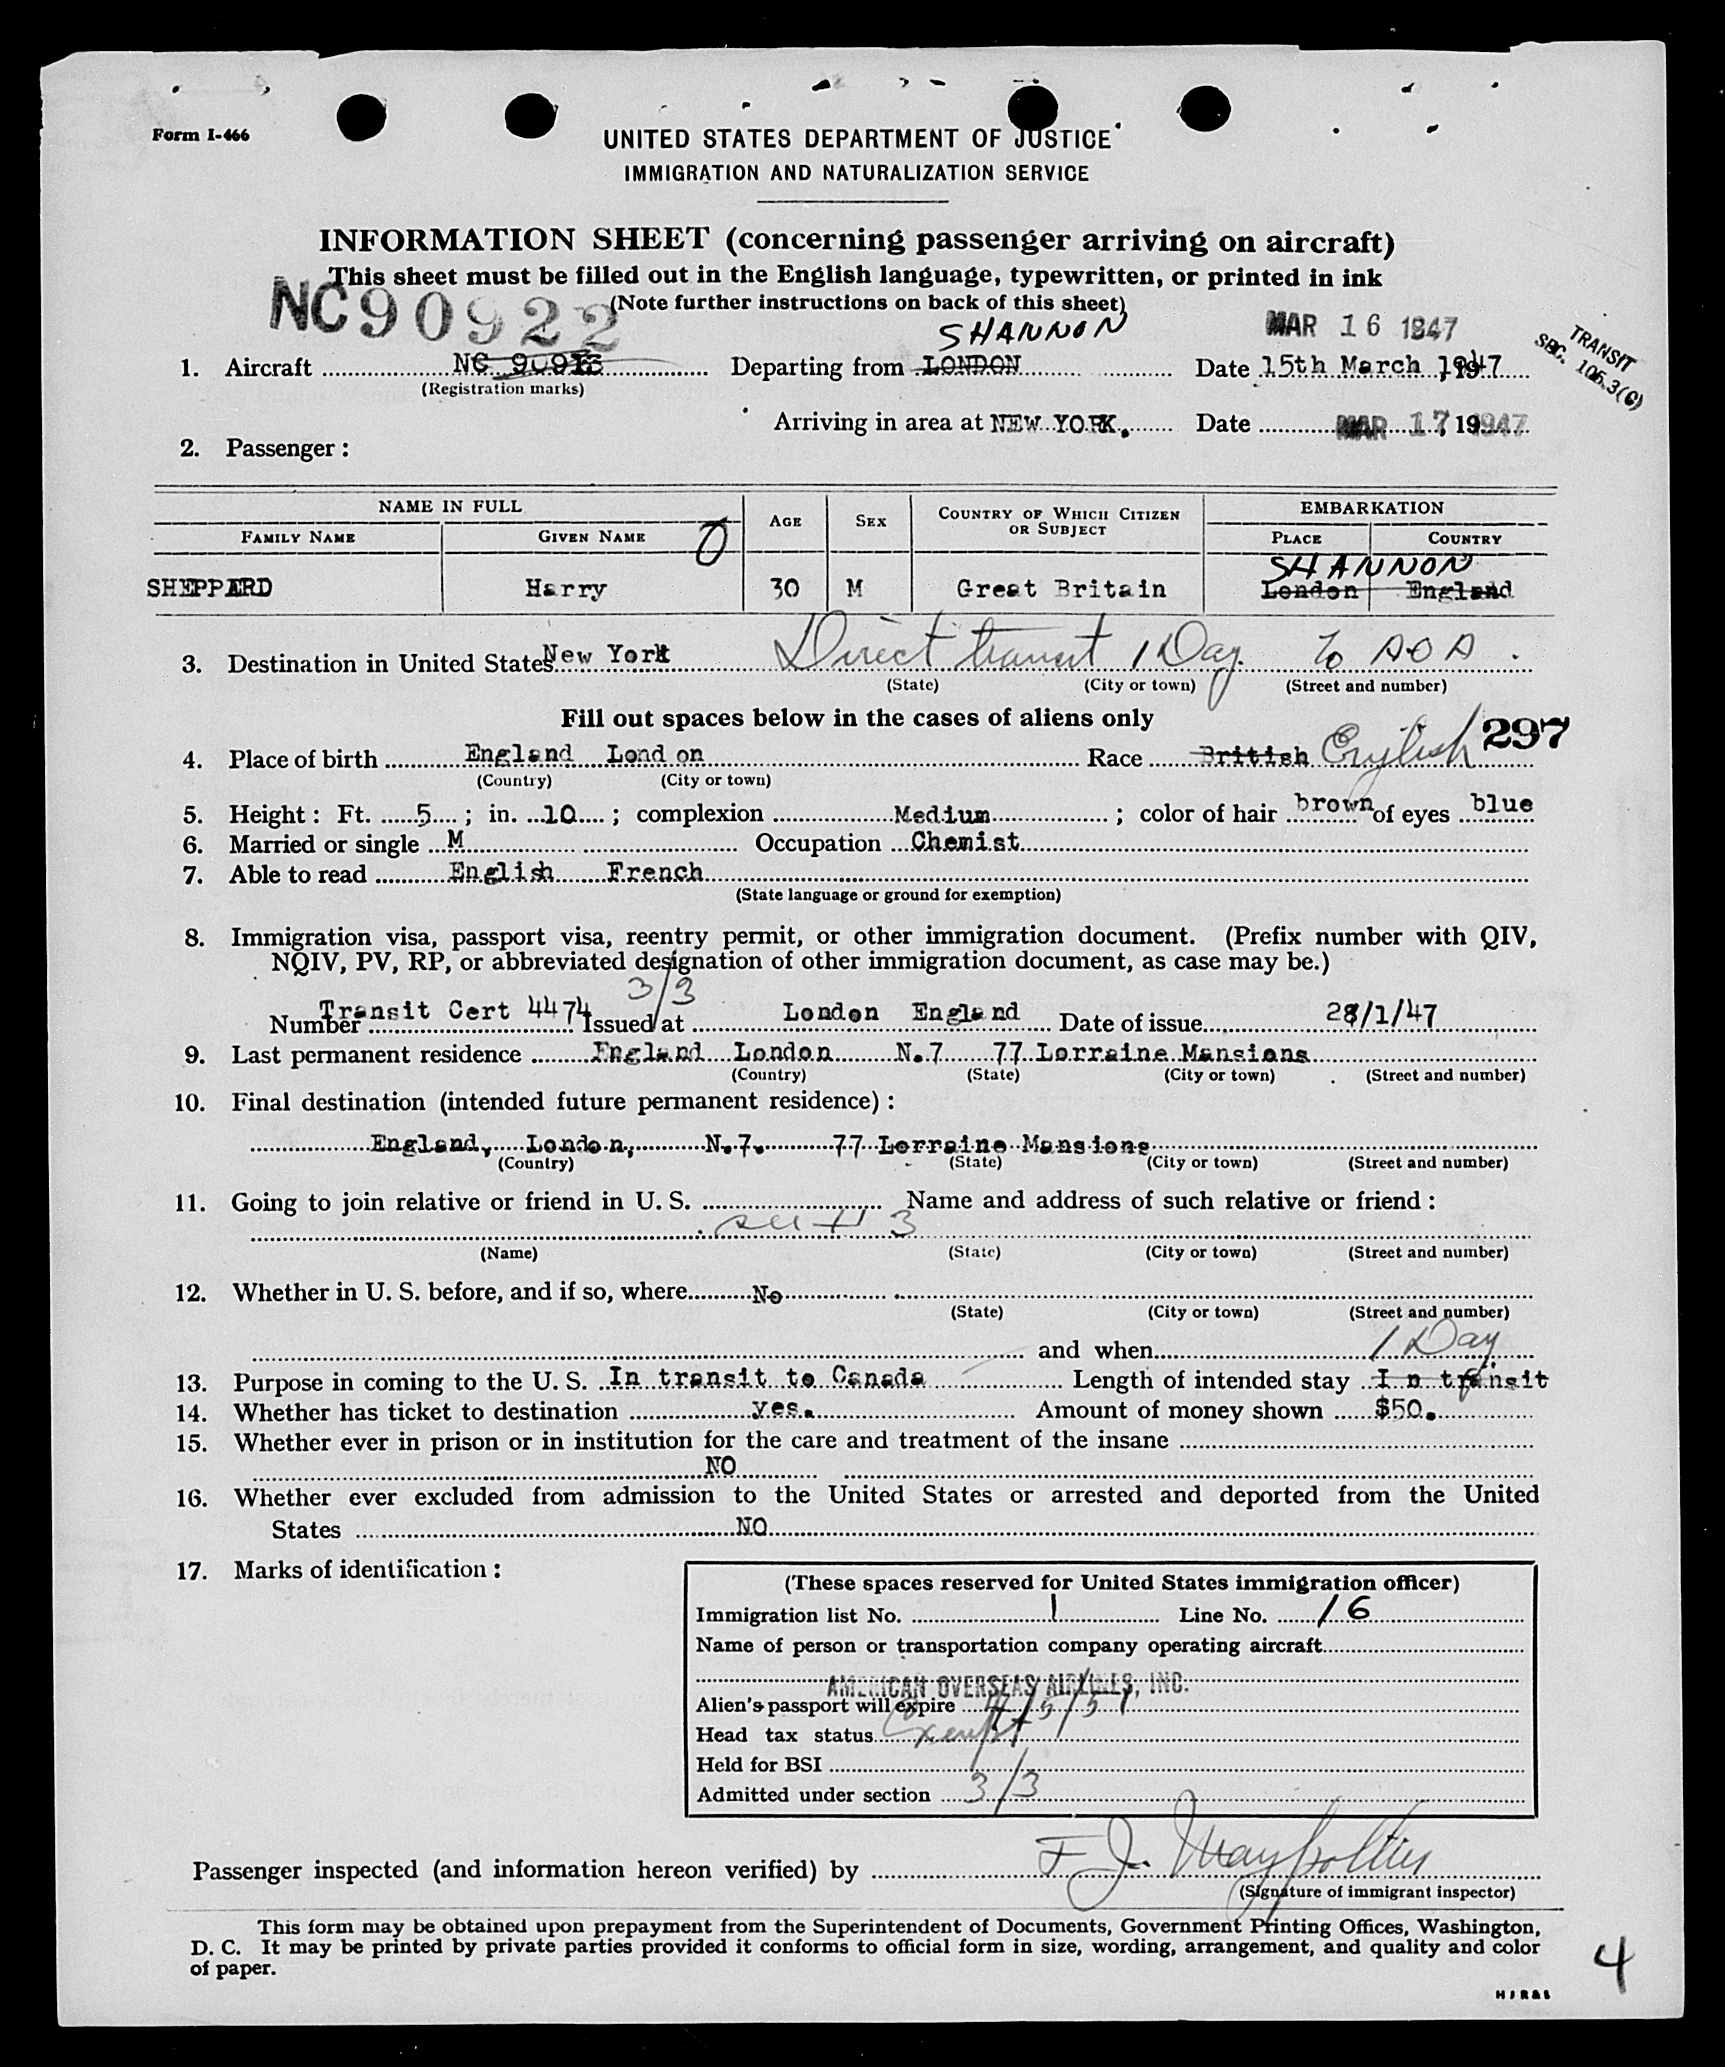 Form I-466
UNITED STATES DEPARTMENT OF JUSTICE
IMMIGRATION AND NATURALIZATION SERVICE
INFORMATION SHEET (concerning passenger arriving on aircraft)
This sheet must be filled out in the English language, typewritten, or printed in ink
(Note further instructions on back of this sheet)
NC90922
SHANNON
MAR 16 1947
TRANSIT
SEC. 105.3(C)
1. Aircraft NC Departing from LONDON Date 15th March, 1947
(Registration marks)
Arriving in area at NEW YORK. Date MAR 17, 19 1947
2. Passenger:
NAME IN FULL AGE SEX COUNTRY OF WHICH CITIZEN OR SUBJECT EMBARKATION
FAMILY NAME GIVEN NAME PLACE COUNTRY
0 SHANNON
SHEPPARD Harry 30 M Great Britain London England
3. Destination in United States New York Direct transit 1 Day To AOA.
(State) (City or town) (Street and number)
Fill out spaces below in the cases of aliens only
297
4. Place of birth England London Race British English
(Country) (City or town)
5. Height: Ft. 5; in. 10; complexion Medium; color of hair brown of eyes blue
6. Married or single M Occupation Chemist
7. Able to read English French
(State language or ground for exemption)
8. Immigration visa, passport visa, reentry permit, or other immigration document. (Prefix number with QIV,
NQIV, PV, RP, or abbreviated designation of other immigration document, as case may be.)
3/3
Number Transit Cert 4474 Issued at London England Date of issue 28/1/47
9. Last permanent residence England London N.7 77 Lorraine Mansions
(Country) (State) (City or town) (Street and number)
10. Final destination (intended future permanent residence):
England, London, N.7. 77 Lorraine Mansions
(Country) (State) (City or town) (Street and number)
11. Going to join relative or friend in U. S. Name and address of such relative or friend:
3
(Name) (State) (City or town) (Street and number)
12. Whether in U. S. before, and if so, where No
(State) (City or town) (Street and number)
and when 1 Day
13. Purpose in coming to the U. S. In transit to Canada Length of intended stay In transit
14. Whether has ticket to destination yes. Amount of money shown $50.
15. Whether ever in prison or in institution for the care and treatment of the insane
NO
16. Whether ever excluded from admission to the United States or arrested and deported from the United
States NO
17. Marks of identification:
(These spaces reserved for United States immigration officer)
Immigration list No. 1 Line No. 16
Name of person or transportation company operating aircraft
AMERICAN OVERSEAS AIRLINES, INC.
Alien's passport will expire 4/5/51
Head tax status Exempt
Held for BSI
Admitted under section 3/3
Passenger inspected (and information hereon verified) by F J.
(Signature of immigrant inspector)
This form may be obtained upon prepayment from the Superintendent of Documents, Government Printing Offices, Washington,
D. C. It may be printed by private parties provided it conforms to official form in size, wording, arrangement, and quality and color
of paper.
4